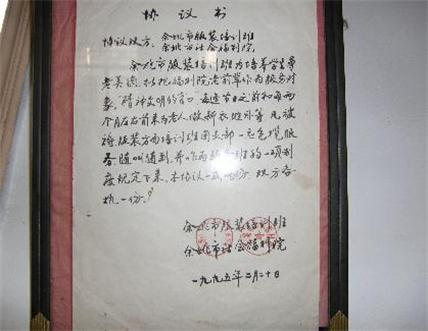 协议书
协议双方：余姚市服装培训班
余姚市社会福利院
余姚市服装培训班为培养学员尊
老美德，拟把福利院老前辈作为服务对
象，"精神文明的窗口"每逢节日之前和每两
个月左右前来为老人做新衣
被服装方面培训班团支部一应包揽服
务。随叫随到，并作为 班的一项制
度规定下来。本协议一式 份，双方各
执一份。
余姚市服装培训班
余姚市社会福利院
一九九五年二月二十日